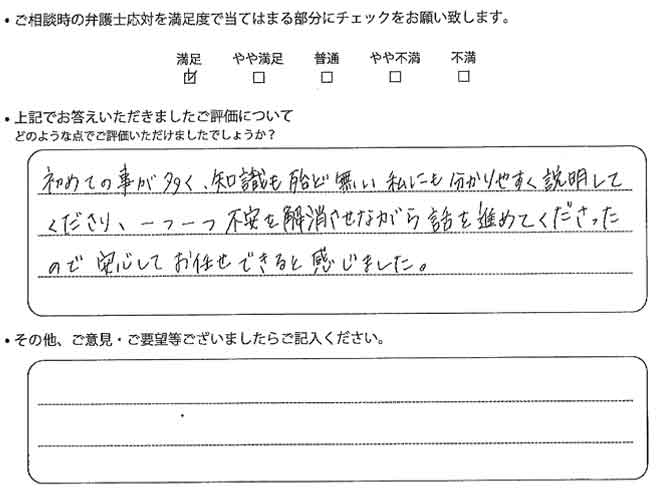 ・ご相談時の弁護士応対を満足度で当てはまる部分にチェックをお願い致します。
満足 やや満足 普通 やや不満 不満
☑ □ □ □ □
・上記でお答えいただきましたご評価について
どのような点でご評価いただけましたでしょうか？
初めての事が多く、知識も殆ど無い私にも分かりやすく説明して
くださり、一つ一つ不安を解消させながら話を進めてくださった
ので安心してお任せできると感じました。
・その他、ご意見・ご要望等ございましたらご記入ください。